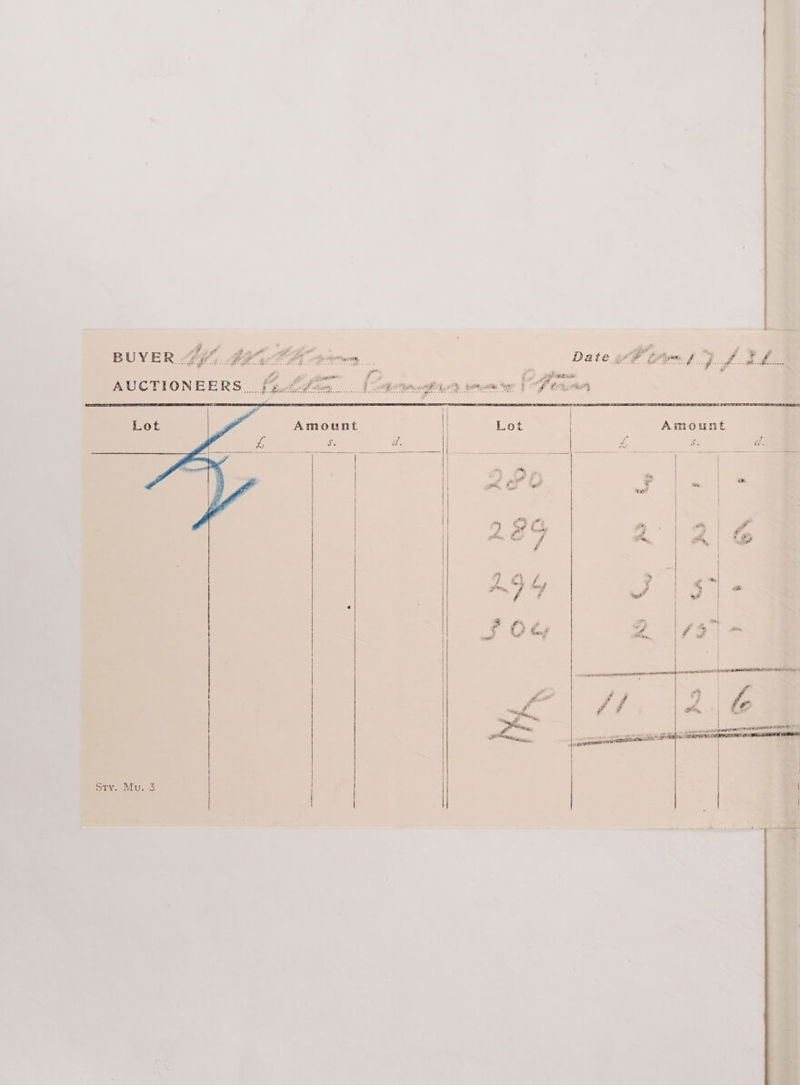 BUYER
Date
AUCTIONEERS
Lot Amount Lot Amount
£ s. d. £ s. d.
280 3 - -
289 2 2 6
294 3 5 -
304 2 15 -
£ 11 2 6
Sty. Mu. 3